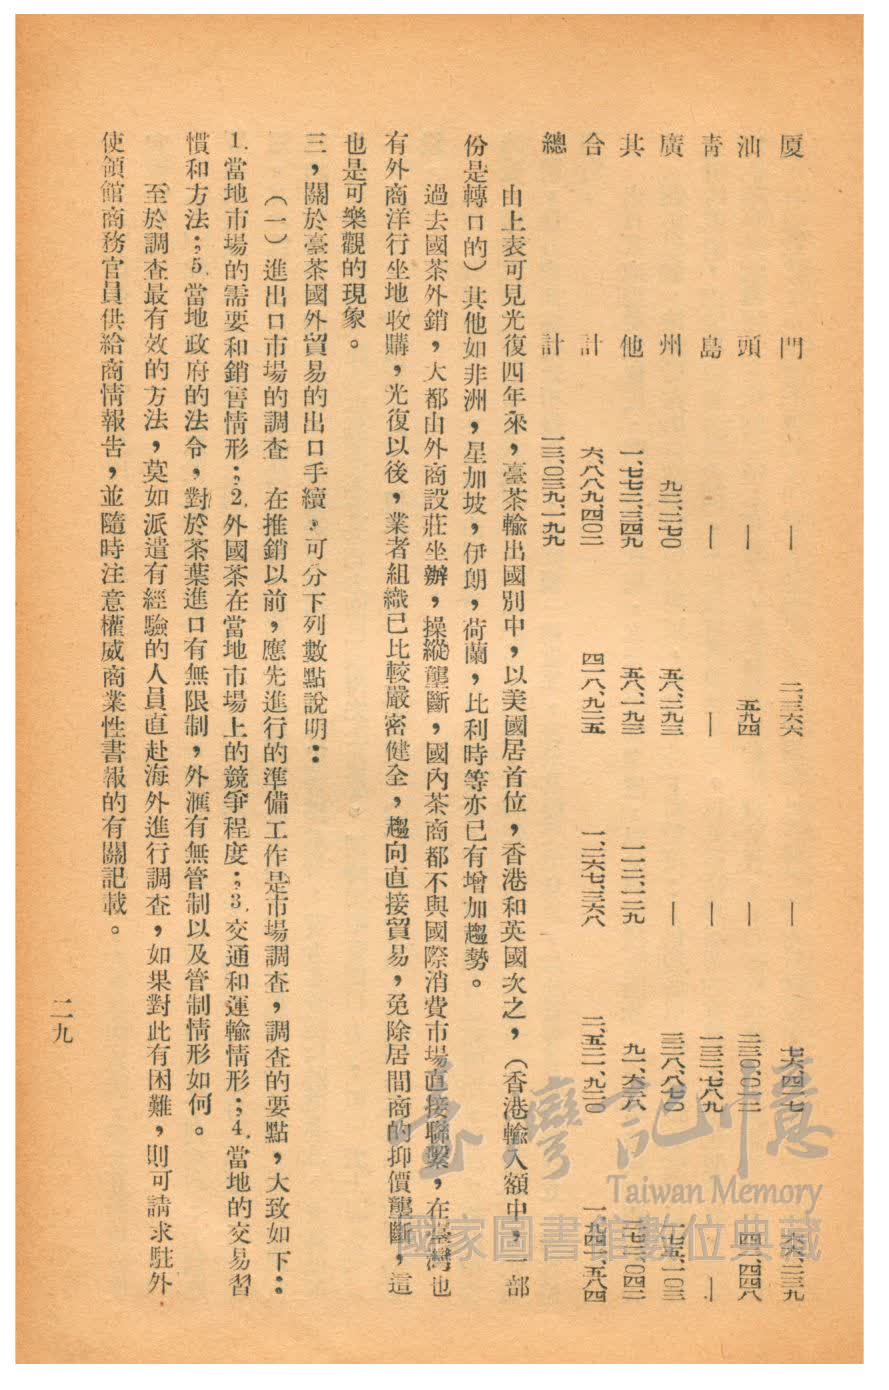 厦門 — 二、三六六 — 七六、四一七 六六、二三九
汕頭 — 五九四 — 二三〇、〇一二 四二、四四八
青島 — — — 一三二、七八九 —
廣州 九二、二七〇 五八、二九三 — 三二八、八七〇 一七五、一〇三
共他 一、七七二、三四九 五八、一九三 一一二、一二九 九一、六六八 一七三、〇四二
合計 六、八八九、四〇二 四一八、九二五 一、二六七、三六八 二、五二一、九二〇 一、九四一、五八四
總計 一三、〇三九、一九九
由上表可見光復四年來，臺茶輸出國別中，以美國居首位，香港和英國次之，（香港輸入額中，一部
份是轉口的）其他如非洲，星加坡，伊朗，荷蘭，比利時等亦已有增加趨勢。
過去國茶外銷，大都由外商設莊坐辦，操縱壟斷，國內茶商都不與國際消費市場直接聯繫，在臺灣也
有外商洋行坐地收購，光復以後，業者組織已比較嚴密健全，趨向直接貿易，免除居間商的抑價壟斷，這
也是可樂觀的現象。
三，關於臺茶國外貿易的出口手續，可分下列數點說明：
（一）進出口市場的調查　在推銷以前，應先進行的準備工作是市場調查，調查的要點，大致如下：
1.當地市場的需要和銷售情形；2.外國茶在當地市場上的競爭程度；3.交通和運輸情形；4.當地的交易習
慣和方法；5.當地政府的法令，對於茶葉進口有無限制，外滙有無管制以及管制情形如何。
至於調查最有效的方法，莫如派遣有經驗的人員直赴海外進行調查，如果對此有困難，則可請求駐外
使領館商務官員供給商情報告，並隨時注意權威商業性書報的有關記載。
二九
臺灣記憶
Taiwan Memory
國家圖書館數位典藏